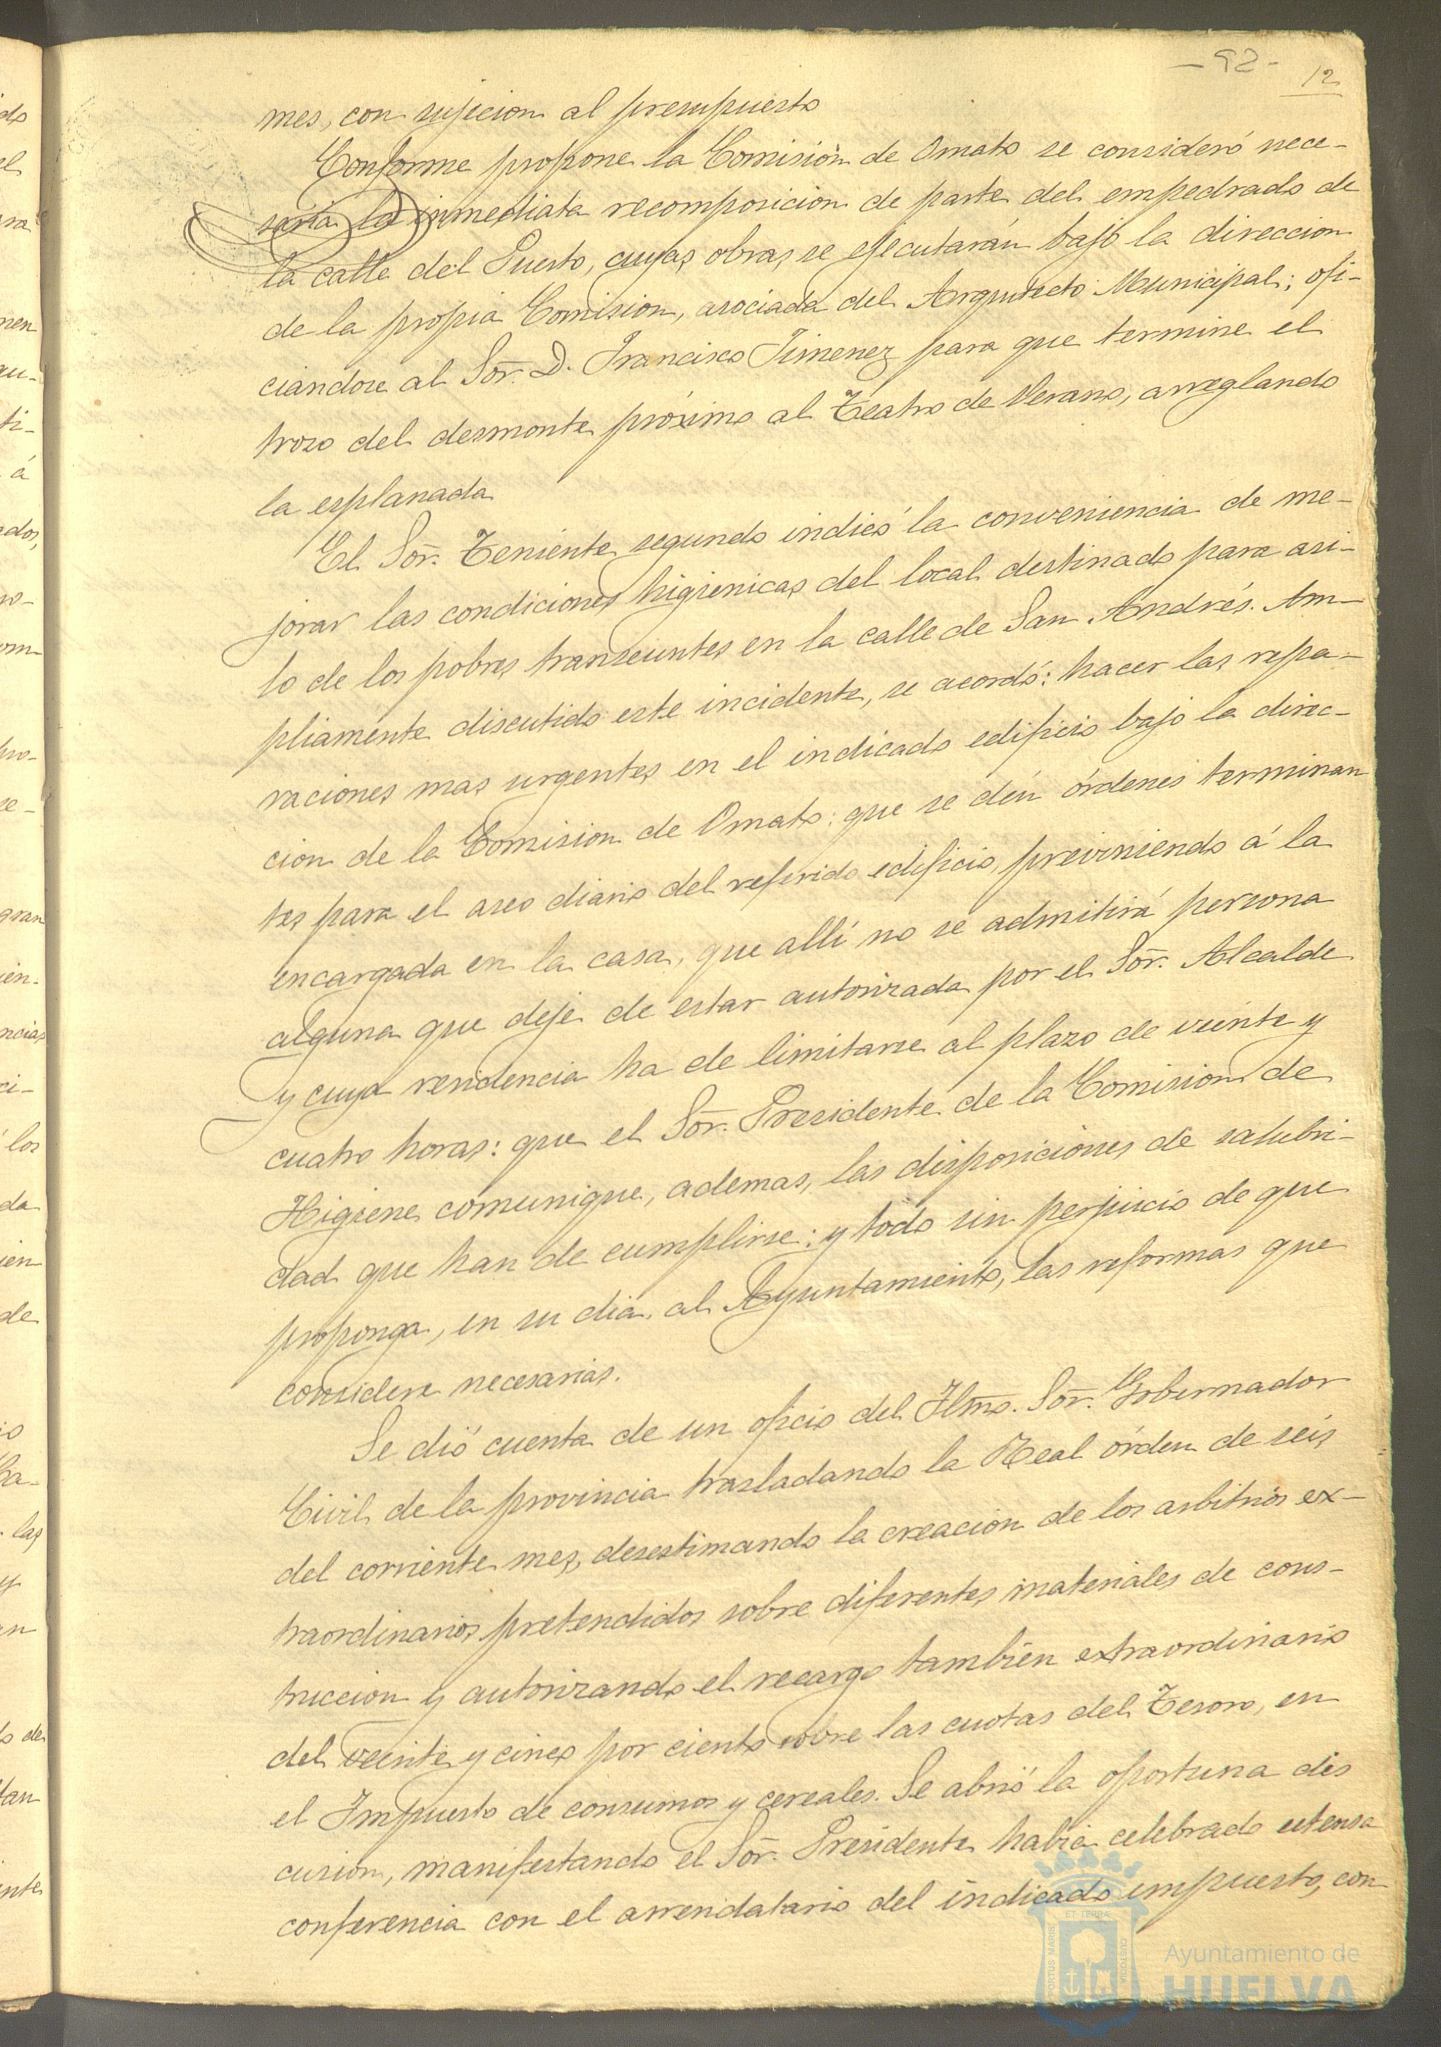 - 92 -
12
mes, con sujecion al presupuesto
Conforme propone la Comisión de Ornato se consideró nece-
saria la inmediata recomposicion de parte del empedrado de
la calle del Puerto, cuyas obras se ejecutarán bajo la direccion
de la propia Comision, asociada del Arquitecto Municipal; ofi-
ciandose al Sor. D. Francisco Jimenez para que termine el
trozo del desmonte próximo al Teatro de Verano, arreglando
la esplanada
El Sor. Teniente segundo indicó la conveniencia de me-
jorar las condiciones higienicas del local destinado para asi-
lo de los pobres transeuntes en la calle de San Andrés. Am-
pliamente discutido este incidente, se acordó: hacer las repa-
raciones mas urgentes en el indicado edificio bajo la direc-
cion de la Comision de Ornato: que se dén órdenes terminan
tes para el aseo diario del referido edificio, previniendo á la
encargada en la casa, que allí no se admitirá persona
alguna que deje de estar autorizada por el Sor. Alcalde
y cuya residencia ha de limitarse al plazo de veinte y
cuatro horas: que el Sor. Presidente de la Comision de
Higiene comunique, ademas, las disposiciones de salubri-
dad que han de cumplirse: y todo sin perjuicio de que
proponga, en su dia, al Ayuntamiento, las reformas que
considere necesarias.
Se dió cuenta de un oficio del Ilmo. Sor. Gobernador
Civil de la provincia trasladando la Real órden de séis
del corriente mes, desestimando la creacion de los arbitrios ex-
traordinarios pretendidos sobre diferentes materiales de cons-
truccion y autorizando el recargo tambien extraordinario
del veinte y cinco por ciento sobre las cuotas del Tesoro, en
el Impuesto de consumos y cereales. Se abrió la oportuna dis
cusion, manifestando el Sor. Presidente habia celebrado estensa
conferencia con el arrendatario del indicado impuesto, con-
PORTUS MARIS
ET TERRÆ
CUSTODIA
Ayuntamiento de
HUELVA